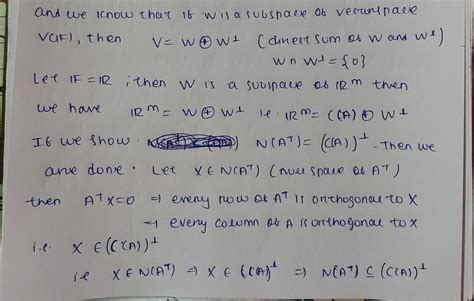 and we know that if W is a subspace of vectorspace
V(F), then V = W ⊕ W⊥ (direct sum of W and W⊥)
W ∩ W⊥ = {0}
Let F = ℝ ; then W is a subspace of ℝᵐ then
we have ℝᵐ = W ⊕ W⊥ i.e. ℝᵐ = C(A) ⊕ W⊥
If we show N(Aᵀ) = (C(A))⊥. Then we
are done. Let X ∈ N(Aᵀ) (null space of Aᵀ)
then Aᵀx = 0 ⇒ every row of Aᵀ is orthogonal to X
⇒ every column of A is orthogonal to x
i.e. X ∈ (C(A))⊥
i.e X ∈ N(Aᵀ) ⇒ X ∈ (C(A))⊥ ⇒ N(Aᵀ) ⊆ (C(A))⊥